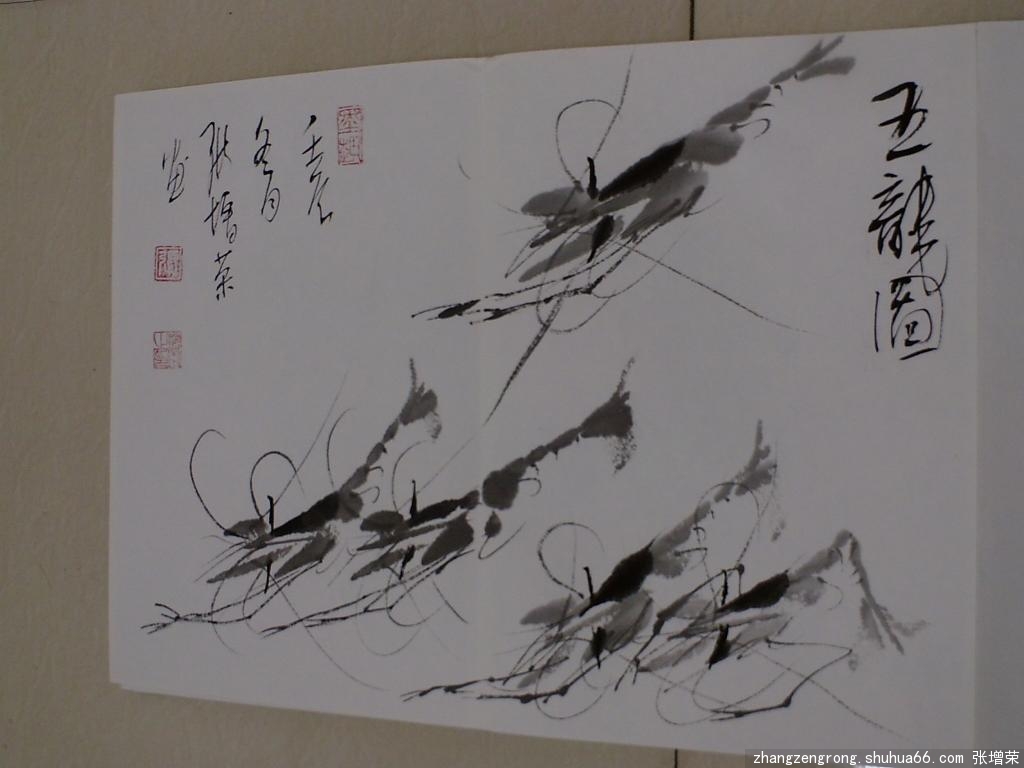 五龍圖
壬辰
冬月
张增荣
画
zhangzengrong.shuhua66.com 张增荣